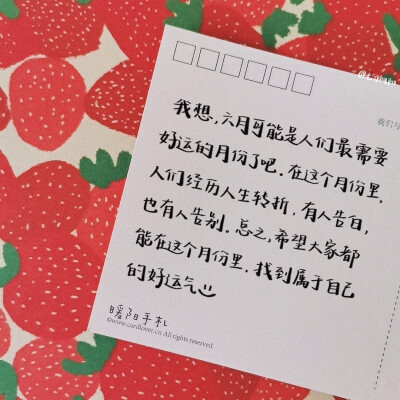 我们与
我想，六月可能是人们最需要
好运的月份了吧．在这个月份里，
人们经历人生转折．有人告白，
也有人告别．总之，希望大家都
能在这个月份里．找到属于自己
的好运气
暖阳手札
©www.cardlover.cn All rights reserved.